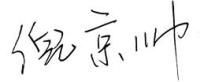 倪京帅